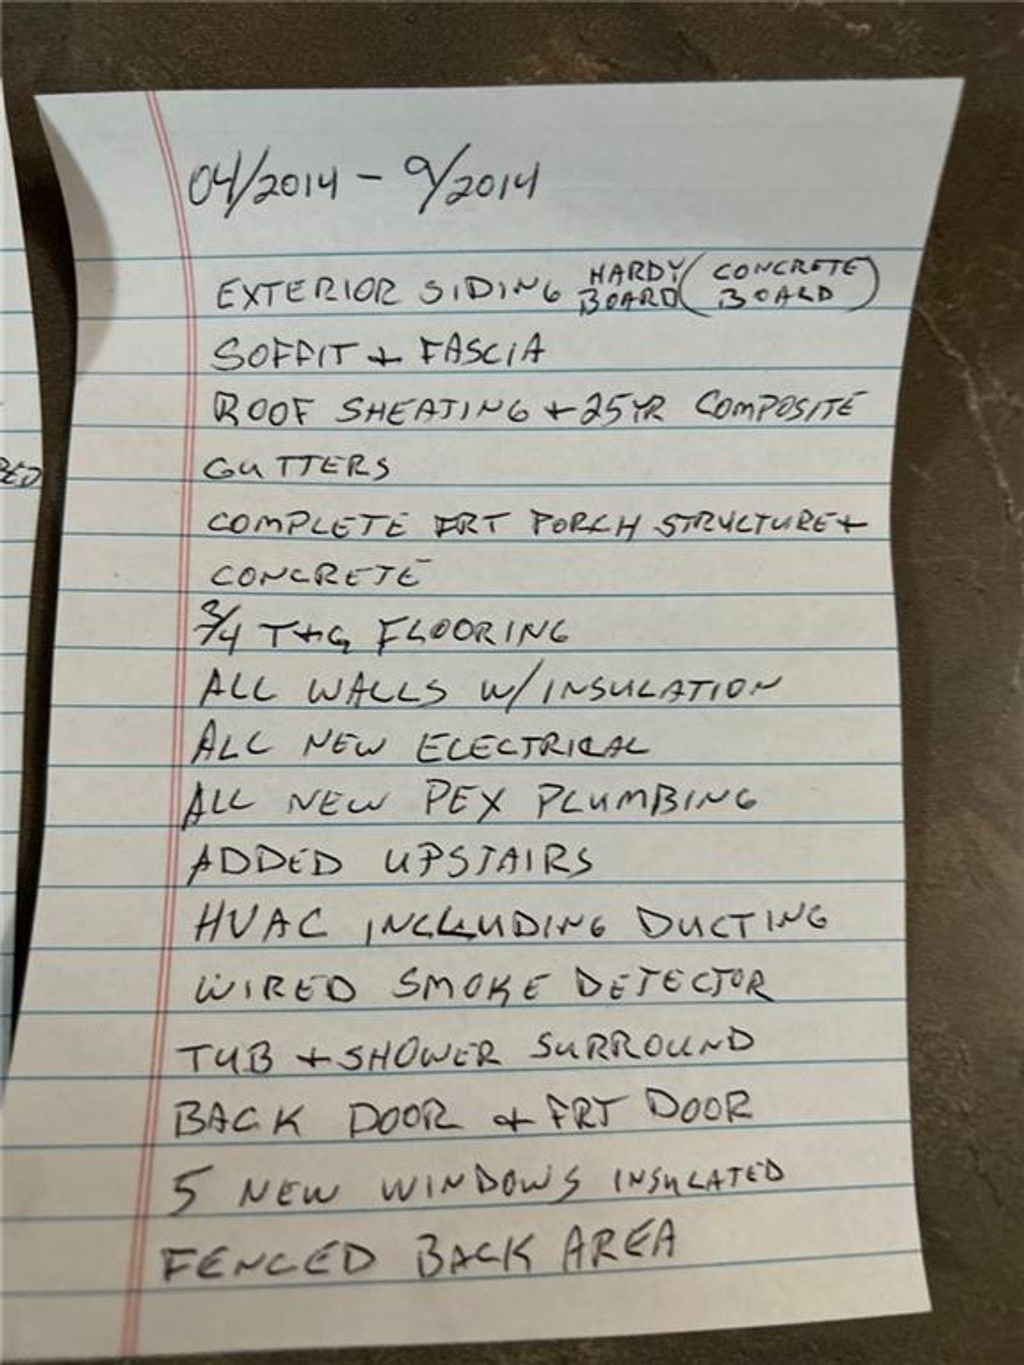 04/2014 - 9/2014
EXTERIOR SIDING HARDY BOARD (CONCRETE BOARD)
SOFFIT + FASCIA
ROOF SHEATING + 25 YR COMPOSITE
GUTTERS
COMPLETE FRT PORCH STRUCTURE +
CONCRETE
3/4 T+G FLOORING
ALL WALLS W/INSULATION
ALL NEW ELECTRICAL
ALL NEW PEX PLUMBING
ADDED UPSTAIRS
HVAC INCLUDING DUCTING
WIRED SMOKE DETECTOR
TUB + SHOWER SURROUND
BACK DOOR + FRT DOOR
5 NEW WINDOWS INSULATED
FENCED BACK AREA